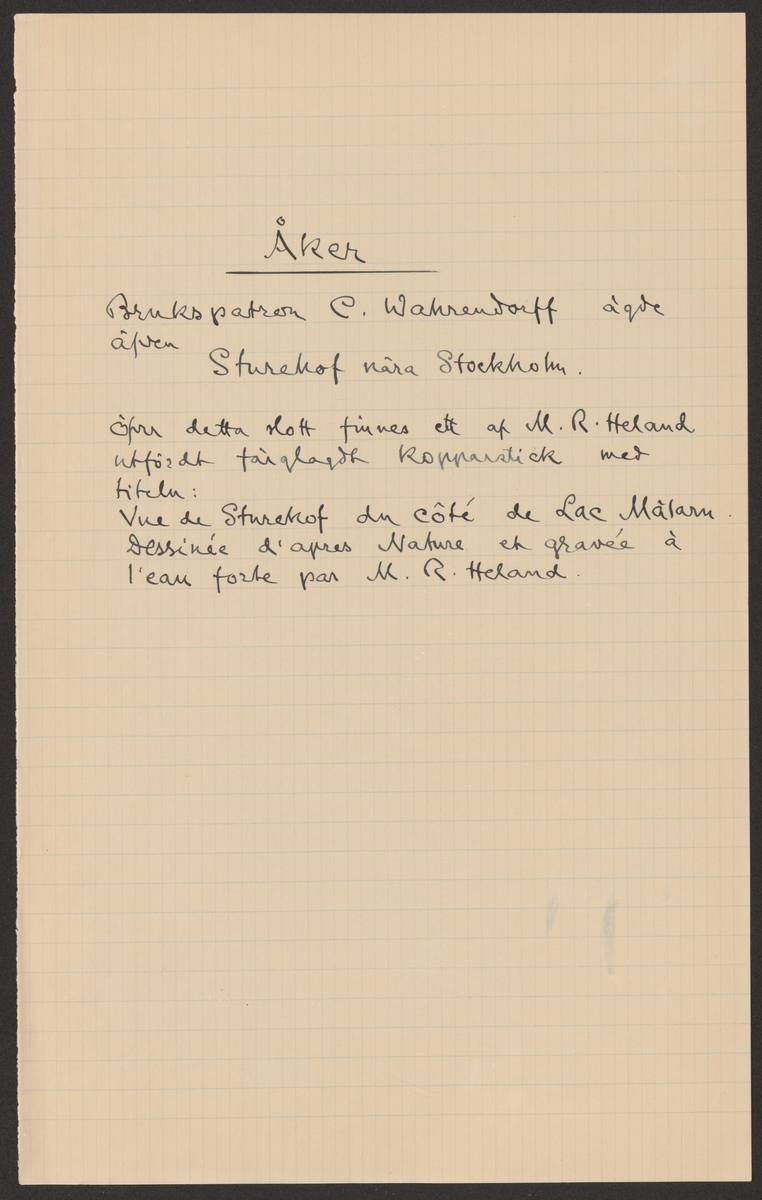 Åker
Brukspatron C. Wahrendorff ägde
äfven
Sturehof nära Stockholm.
öfver detta slott finnes ett af M. R. Heland
utfördt färglagdt kopparstick med
titeln:
Vue de Sturehof du côté de Lac Mälarn.
Dessinée d'apres Nature et gravée à
l'eau forte par M. R. Heland.